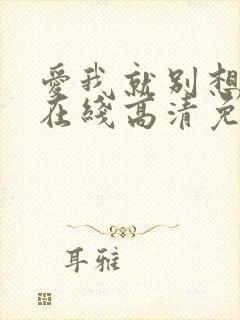 愛我就别想
在綫高清免
耳雅